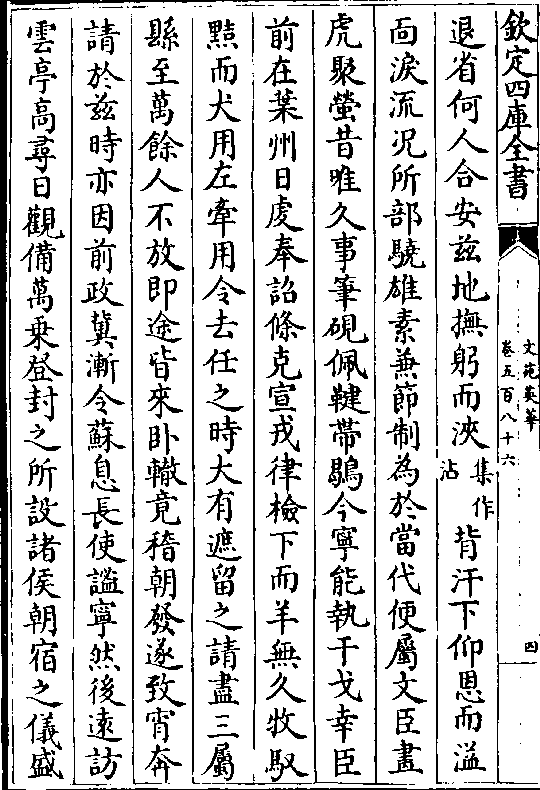 欽定四庫全書
文苑英華
卷五百八十六
四
退省何人合安兹地撫躬而浹集作沾背汗下仰恩而溢
靣淚流况所部驍雄素兼節制為於當代便屬文臣畫
虎聚螢昔唯久事筆硯佩鞬帶鶡今寧能執干戈幸臣
前在葉州日䖍奉詔條克宣戎律檢下而羊無久牧馭
黠而犬用左牽用令去任之時大有遮留之請盡三屬
縣至萬餘人不放即途皆來卧轍竟稽朝發遂致宵奔
請於兹時亦因前政冀漸令蘇息長使謐寧然後逺訪
雲亭髙尋日觀備萬乗登封之所設諸侯朝宿之儀盛